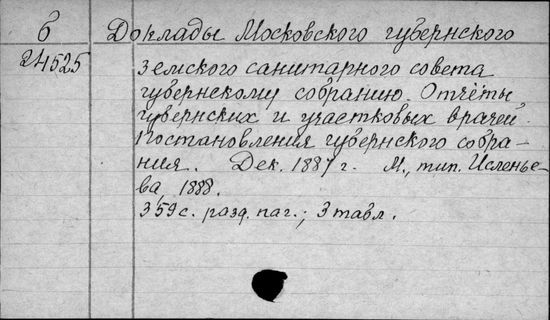 б Доклады Московского губернского
24525 земского санитарного совета
губернскому собранию. Отчёты
губернских и участковых врачей.
Постановления губернского собра-
ния. Дек. 1887 г. М., тип. Исленье-
ва, 1888.
359 с. разд. паг.; 3 табл.